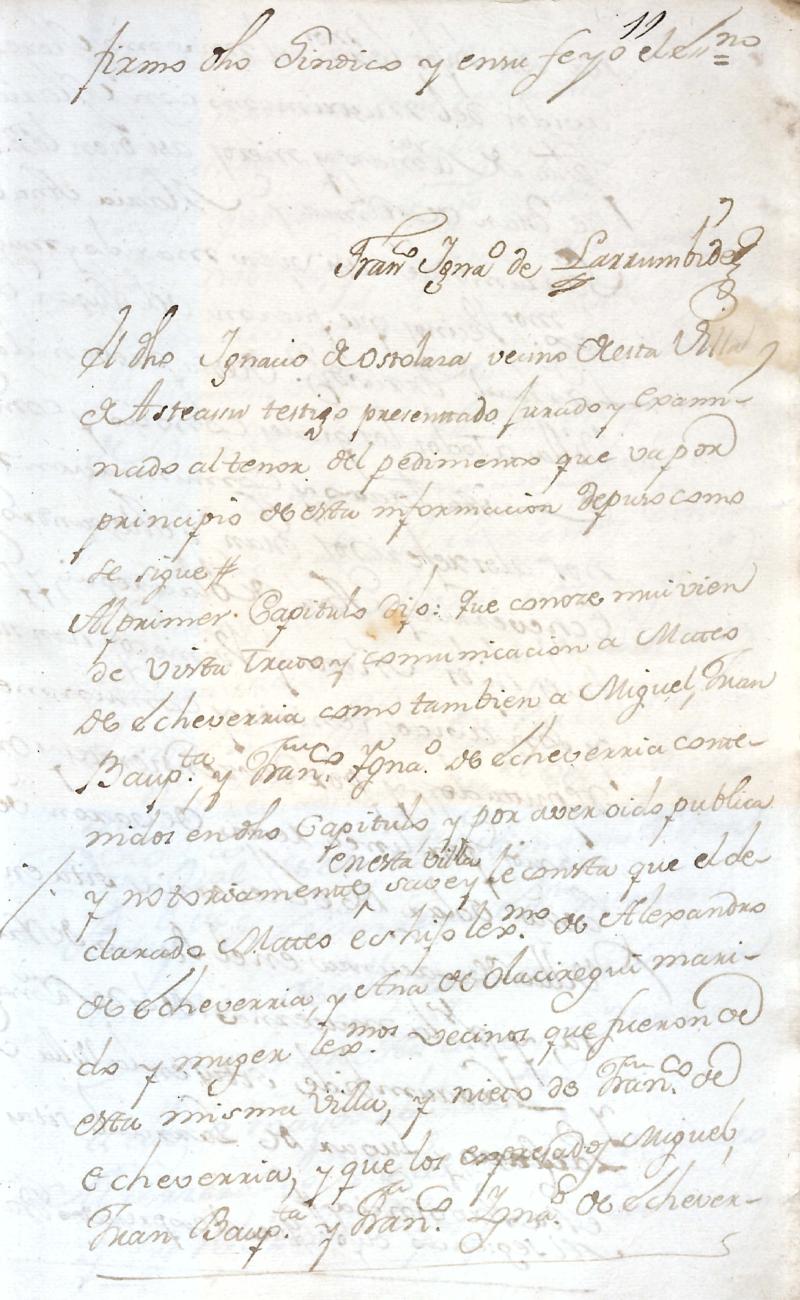 11
firmo dho Sindico y en su fe yo el ssno =
Franco Ignao de Larrumbide
El dho Ignacio de Ostolaza vecino de esta Villa
de Asteassu testigo presentado Jurado y exami-
nado al tenor del pedimento que va por
principio de esta informacion depuso como
se sigue
Al primer Capitulo Dijo: que conoze mui vien
de vista trato y comunicacion a Matteo
de Echeverria como tambien a Miguel, Juan
Baupta, y Franco Ygnao de Echeverria conte-
nidos en dho Capitulo y por aver oido publica
y notoriamente, en esta villa save y le consta que el de-
clarado Matteo es hijo lexmo de Alexandro
de Echeverria, y Ana de Olaciregui mari-
do y muger lexmos vecinos que fueron de
esta misma villa, y nieto de Franco de
Echeverria, y que los expresados Miguel,
Juan Baupta y Franco Ygnao de Echever-